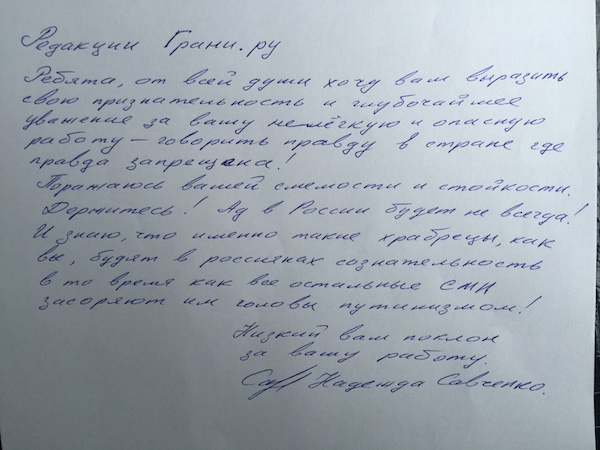 Редакции Грани.ру
Ребята, от всей души хочу вам выразить
свою признательность и глубочайшее
уважение за вашу нелёгкую и опасную
работу – говорить правду в стране где
правда запрещена!
Поражаюсь вашей смелости и стойкости.
Держитесь! Ад в России будет не всегда!
И знаю, что именно такие храбрецы, как
вы, будят в россиянах сознательность
в то время как все остальные СМИ
засоряют им головы путинизмом!
Низкий вам поклон
за вашу работу.
Надежда Савченко.